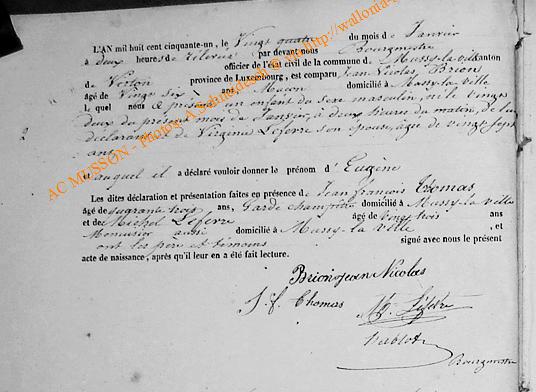 L'AN mil huit cent cinquante-un, le Vingt quatre du mois de Janvier
à deux heures de relevée par devant nous Bourgmestre
officier de l'état civil de la commune de Mussy-la-ville canton
de Virton province de Luxembourg, est comparu Jean Nicolas Brion
âgé de Vingt six ans, domicilié à Mussy-la-ville
L quel nous a présenté un enfant du sexe masculin, né le vingt
deux du présent mois de Janvier, à deux heures du matin, de lui
déclarant et de Virginie Lefevre son épouse, âgée de vingt sept
ans
et auquel il a déclaré vouloir donner le prénom d'Eugène
Les dites déclaration et présentation faites en présence de Jean françois Thomas
âgé de ans, Garde champêtre domicilié à Mussy-la ville
et de Michel Lefevre âgé de Vingt trois ans
aussi domicilié à Mussy-la ville, et
ont les père et témoins signé avec nous le présent
acte de naissance, après qu'il leur en a été fait lecture.
Brion Jean Nicolas
J. f. Thomas
Bourgmestre
2
AC MUSSON - Photos: A